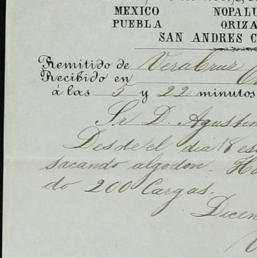 MEXICO NOPALU
PUEBLA ORIZA
SAN ANDRES C
Remitido de Veracruz
Recibido en
á las 5 y 22 minutos
Sr. D. Agustin
Desde el dia 18 es
sacando algodon. Ha
do 200 Cargas.
Dicem